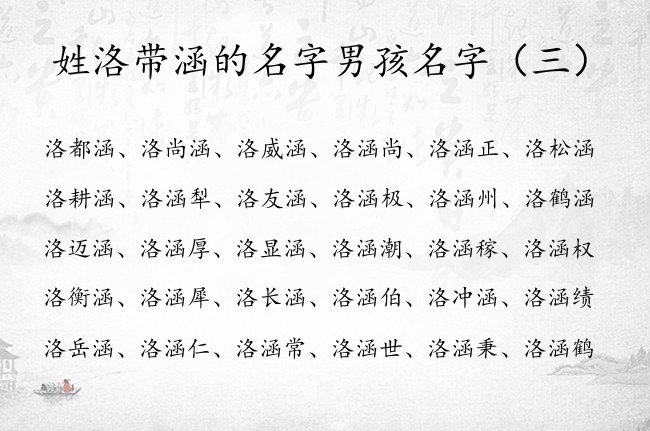 姓洛带涵的名字男孩名字（三）
洛都涵、洛尚涵、洛威涵、洛涵尚、洛涵正、洛松涵
洛耕涵、洛涵犁、洛友涵、洛涵极、洛涵州、洛鹤涵
洛迈涵、洛涵厚、洛显涵、洛涵潮、洛涵稼、洛涵权
洛衡涵、洛涵犀、洛长涵、洛涵伯、洛冲涵、洛涵绩
洛岳涵、洛涵仁、洛涵常、洛涵世、洛涵秉、洛涵鹤